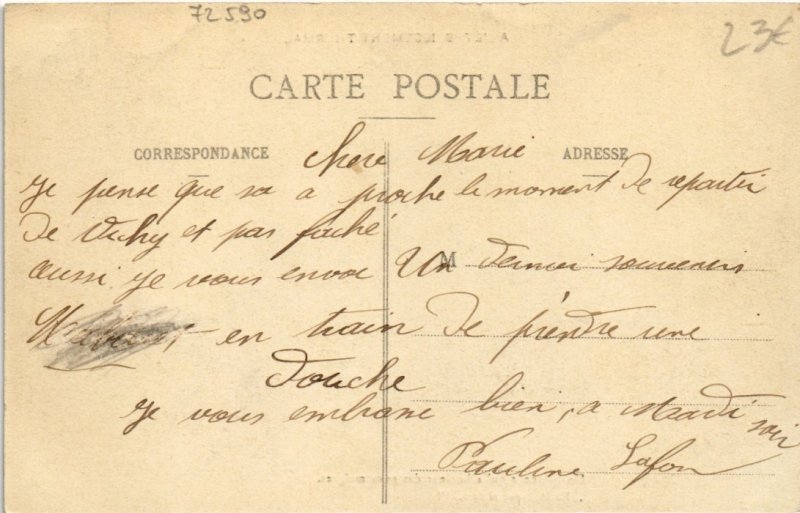 72590
23€
CARTE POSTALE
CORRESPONDANCE
ADRESSE
chere Marie
Je pense que sa a proche le moment de repartir
de Vichy et pas faché
aussi je vous envoi un dernier souvenir
M
en train de prendre une
douche
Je vous embrasse bien, a Mardi soir
Pauline Lafon